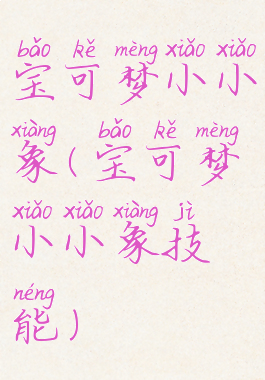 bǎo kě mèng xiǎo xiǎo
宝可梦小小
xiàng bǎo kě mèng
象(宝可梦
xiǎo xiǎo xiàng jì
小小象技
néng
能)